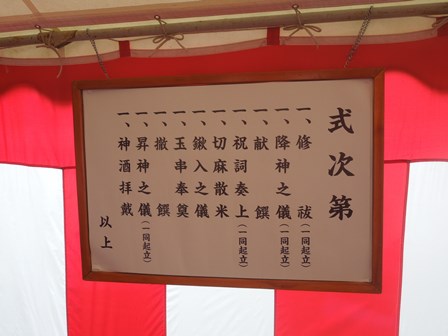 式次第
一、修祓(一同起立)
一、降神之儀(一同起立)
一、献饌
一、祝詞奏上(一同起立)
一、切麻散米
一、鍬入之儀
一、玉串奉奠
一、撤饌
一、昇神之儀(一同起立)
一、神酒拝戴
以上